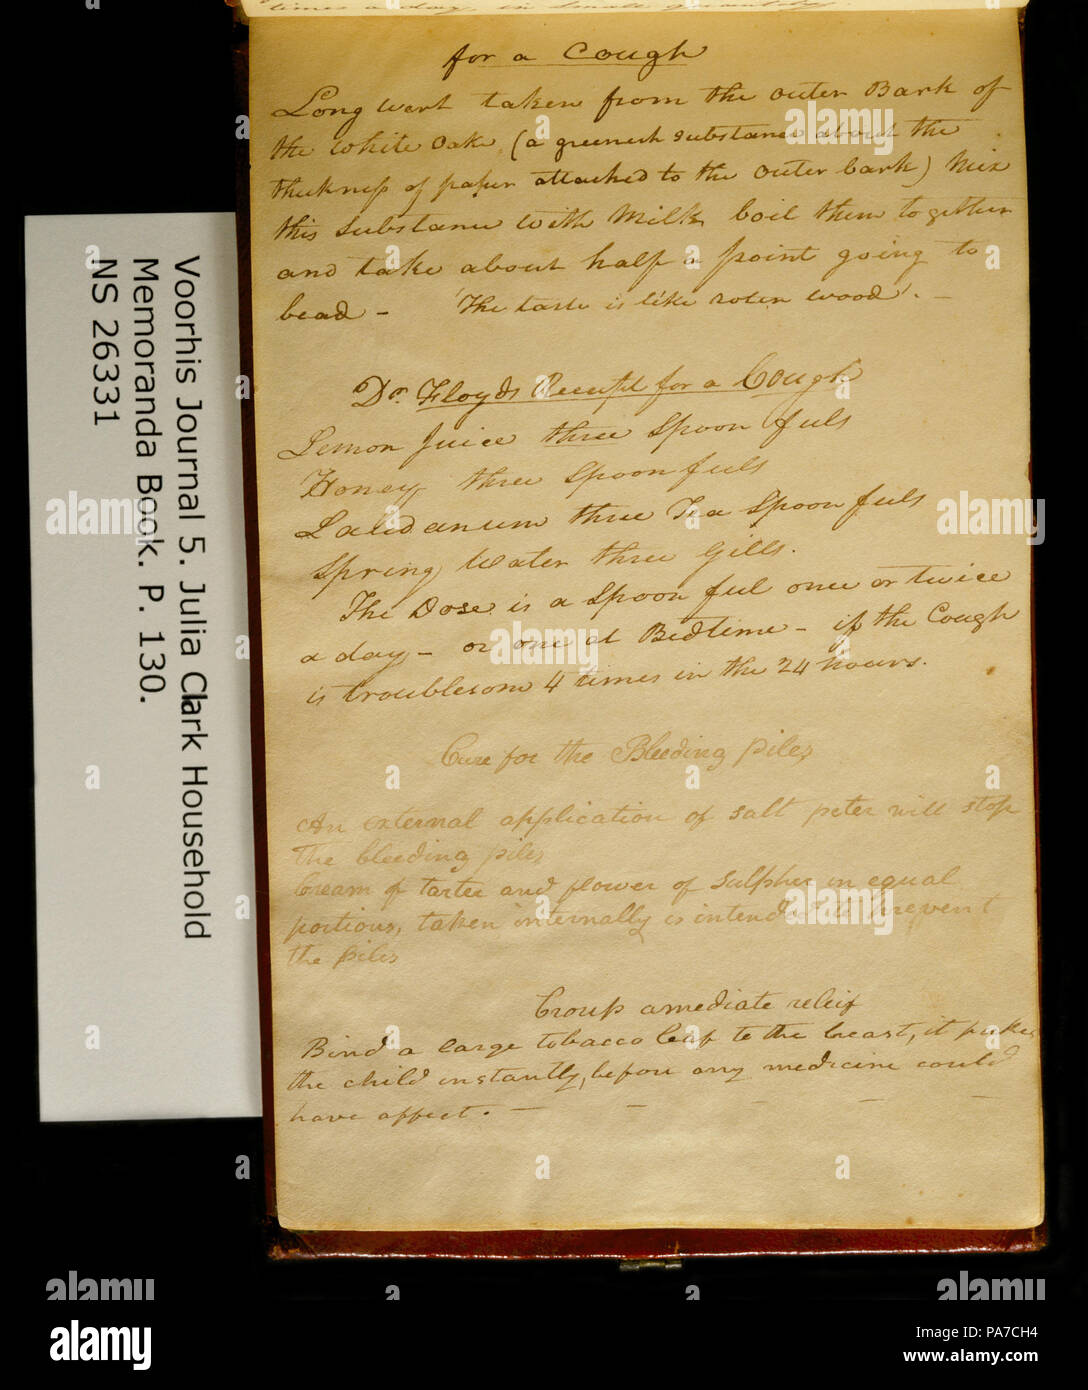 times a day, in small quantity.
for a Cough
Long wort taken from the outer Bark of
the white oak, (a greenish substance about the
thickness of paper attached to the outer bark) Mix
this substance with Milk boil them together
and take about half a point going to
bead - The taste is like roten wood. -
Dr. Floyds Receipt for a Cough
Lemon Juice three Spoon fuls
Honey three Spoon fuls
Laudanum three Tea Spoon fuls
Spring Water three Gills.
The Dose is a Spoon ful once or twice
a day - or one at Bedtime - if the Cough
is troublesome 4 times in the 24 hours.
Cure for the Bleeding piles
An external application of salt peter will stop
the bleeding piles
Cream of tarter and flower of Sulpher in equal
portions, taken internally is intended to prevent
the piles
Croup amediate releif
Bind a large tobacco leaf to the breast, it pukes
the child instantly, before any medicine could
have affect. - - - - -
Voorhis Journal 5. Julia Clark Household
Memoranda Book. P. 130.
NS 26331
alamy
Image ID: PA7CH4
www.alamy.com